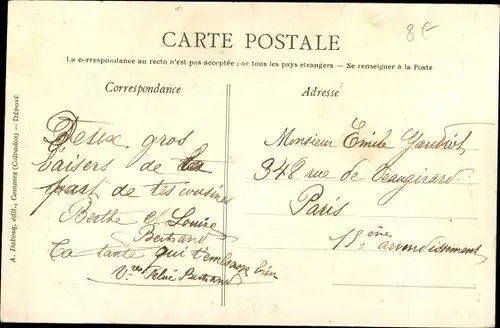 8€
CARTE POSTALE
La correspondance au recto n'est pas acceptée par tous les pays étrangers — Se renseigner à la Poste
Correspondance
Deux gros
baisers de la
part de tes cousines
Berthe et Louise
Bertrand
Ta tante qui t'embrasse bien
Vve Bertrand
Adresse
Monsieur Emile Gaudriot
348 rue de Vaugirard
Paris
15ème arrondissement
A. Dubosq, édit., (Calvados) — DÉPOSÉ